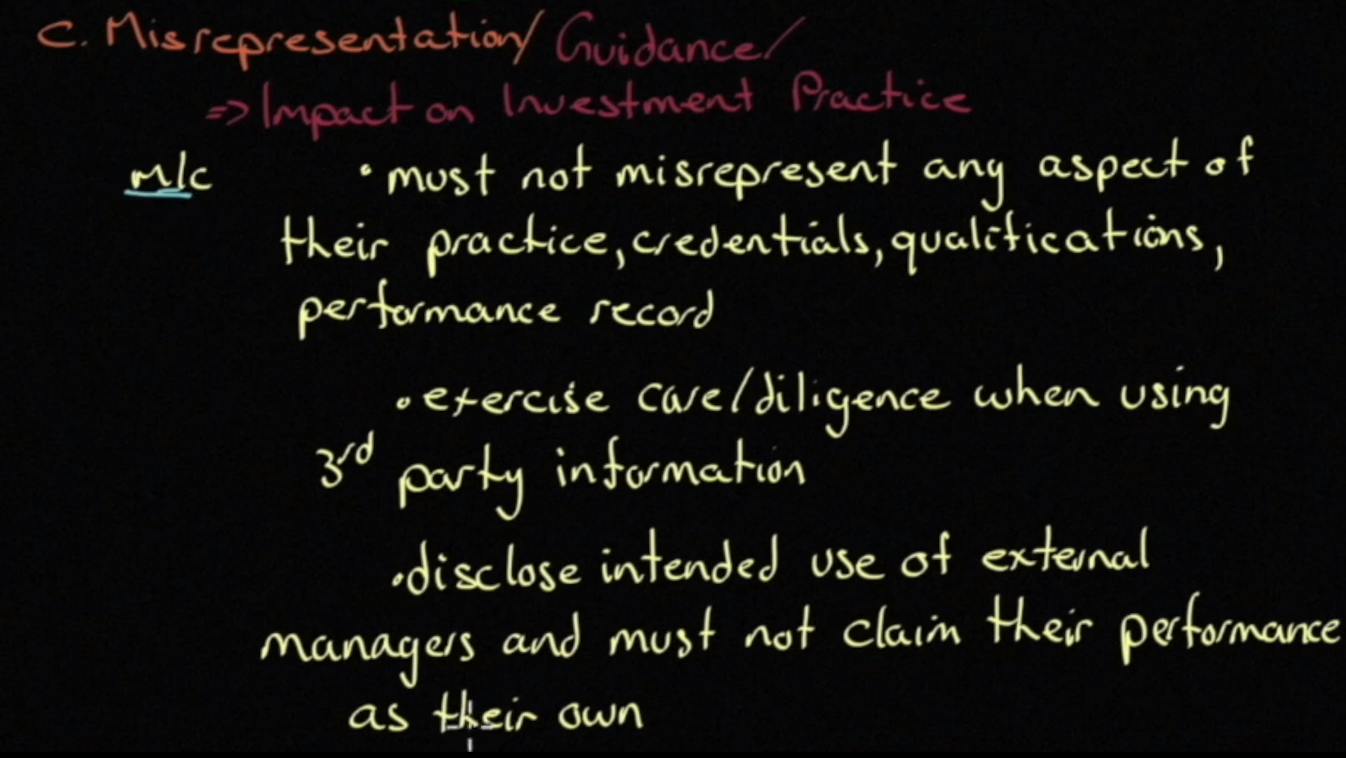 C. Misrepresentation/ Guidance/
=> Impact on Investment Practice
M/c • must not misrepresent any aspect of
their practice, credentials, qualifications,
performance record
• exercise care/diligence when using
3rd party information
• disclose intended use of external
managers and must not claim their performance
as their own